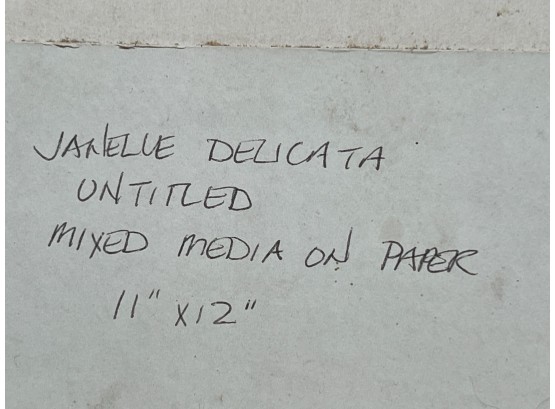 JANELLE DELICATA
UNTITLED
MIXED MEDIA ON PAPER
11" X12"